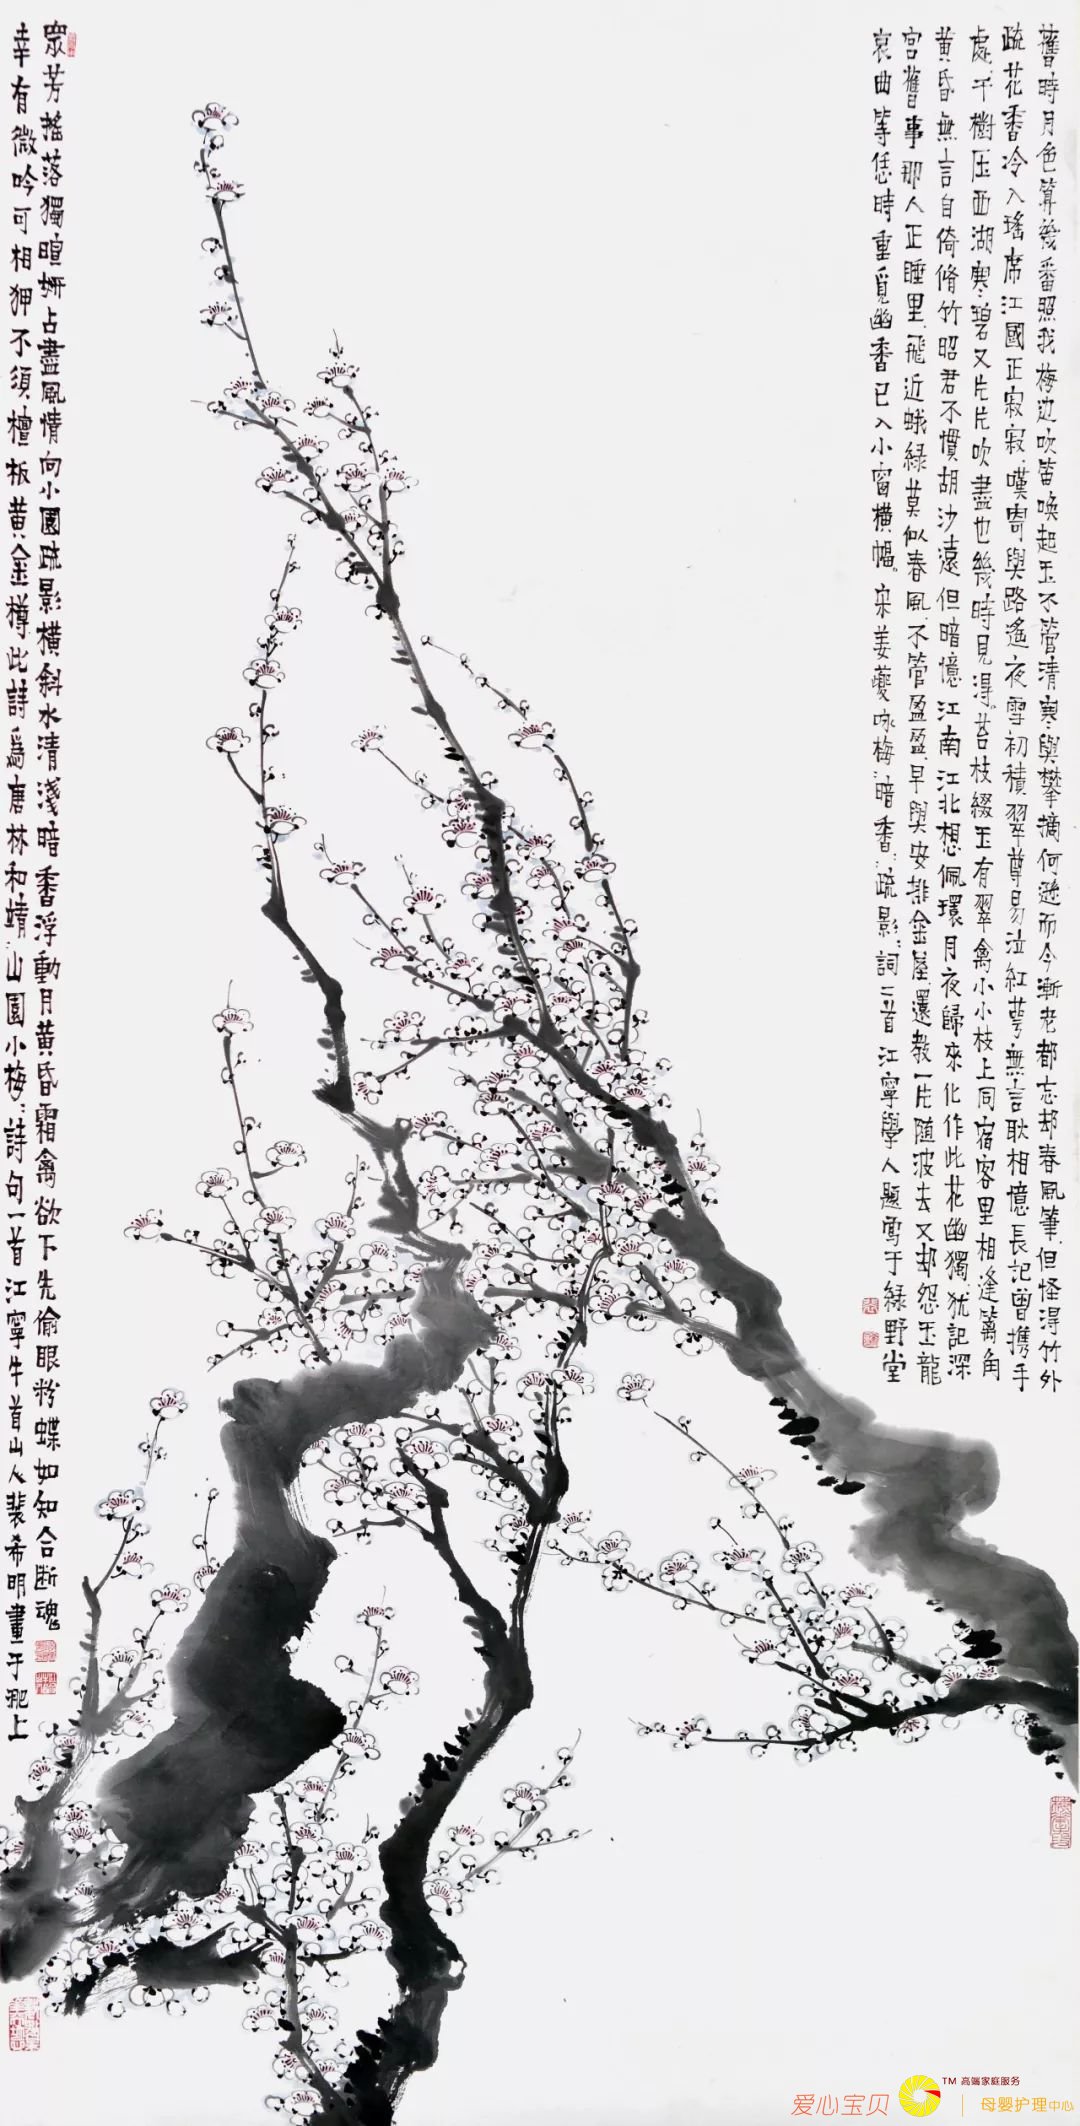 舊時月色算幾番照我梅边吹笛喚起玉不管清寒與攀摘何遜而今漸老都忘却春風筆但怪得竹外
疏花香冷入瑤席江國正寂寂嘆寄與路遙夜雪初積翠尊易泣紅萼無言耿相憶長記曾攜手
處千樹压西湖寒碧又片片吹盡也幾時見得苔枝綴玉有翠禽小小枝上同宿客里相逢篱角
黄昏無言自倚脩竹昭君不慣胡沙遠但暗憶江南江北想佩環月夜歸來化作此花幽獨犹記深
宫舊事那人正睡里飛近蛾綠莫似春風不管盈盈早與安排金屋還教一片随波去又却怨玉龍
哀曲等恁時重覓幽香已入小窗横幅宋姜夔咏梅暗香疏影詞二首江寧學人題寫于綠野堂
眾芳摇落獨暄妍占盡風情向小園疏影横斜水清淺暗香浮動月黄昏霜禽欲下先偷眼粉蝶如知合断魂
幸有微吟可相狎不須檀板黄金樽此詩爲唐林和靖山園小梅詩句一首江寧牛首山人裴希明畫于肥上
爱心宝贝
TM 高端家庭服务
母婴护理中心